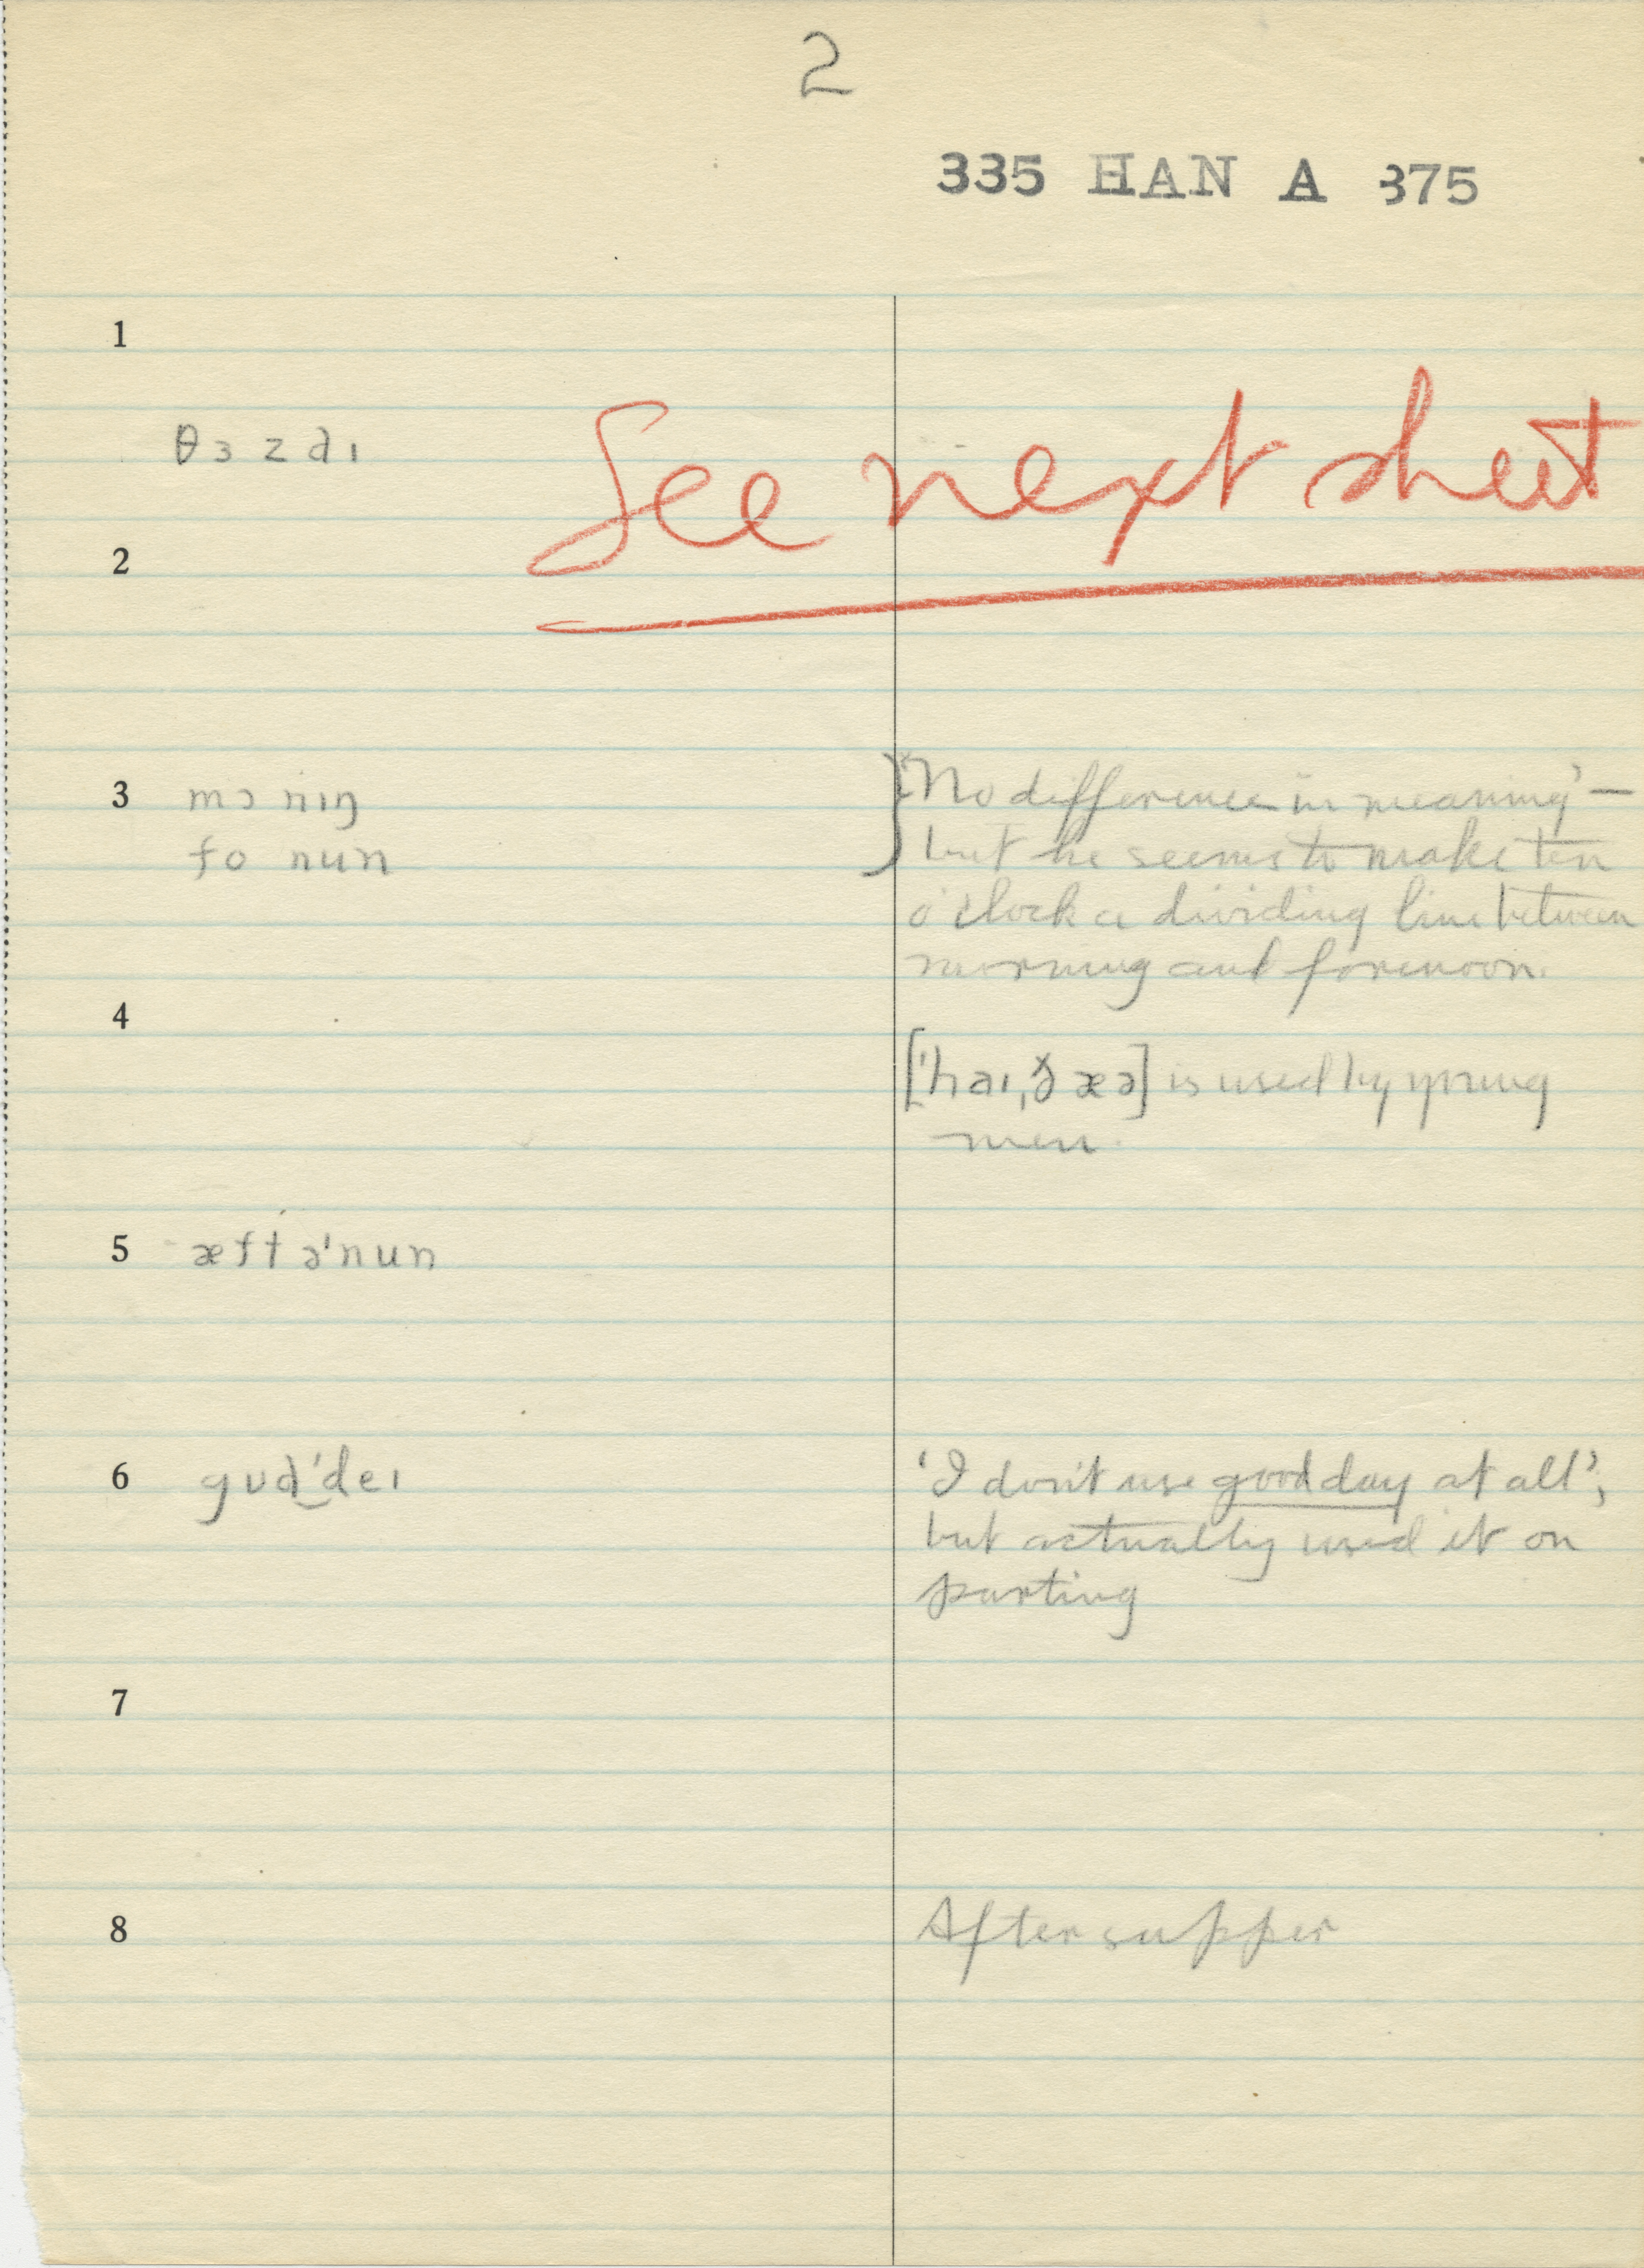 2
335 HAN A 375
1
θɜzdɪ
See next sheet
2
3 mɔnɪŋ
fonun
}'No difference in meaning' —
but he seems to make ten
o'clock a dividing line between
morning and forenoon.
4
['haɪ,ðæə] is used by young
men.
5 æftə'nun
6 gʊd'deɪ
'I don't use good day at all',
but actually used it on
parting
7
8
After supper